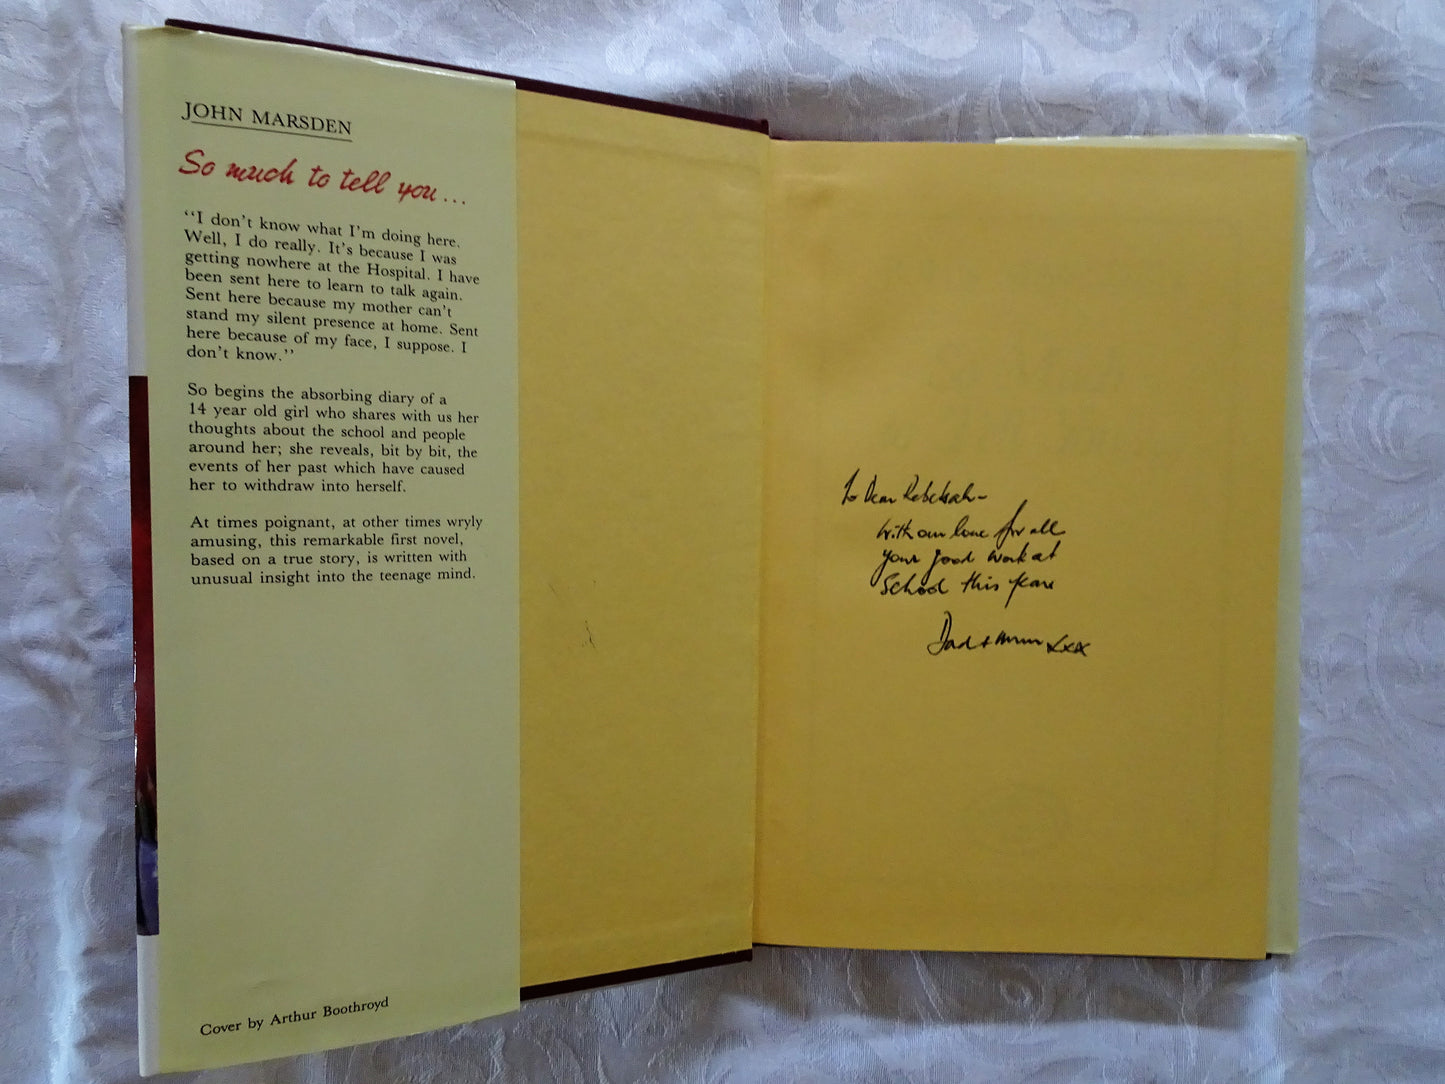 JOHN MARSDEN
So much to tell you...
“I don't know what I'm doing here.
Well, I do really. It's because I was
getting nowhere at the Hospital. I have
been sent here to learn to talk again.
Sent here because my mother can't
stand my silent presence at home. Sent
here because of my face, I suppose. I
don't know.”
So begins the absorbing diary of a
14 year old girl who shares with us her
thoughts about the school and people
around her; she reveals, bit by bit, the
events of her past which have caused
her to withdraw into herself.
At times poignant, at other times wryly
amusing, this remarkable first novel,
based on a true story, is written with
unusual insight into the teenage mind.
Cover by Arthur Boothroyd
To Dear Rebekah-
With our love for all
your good work at
School this year
Dad + Mum xxx